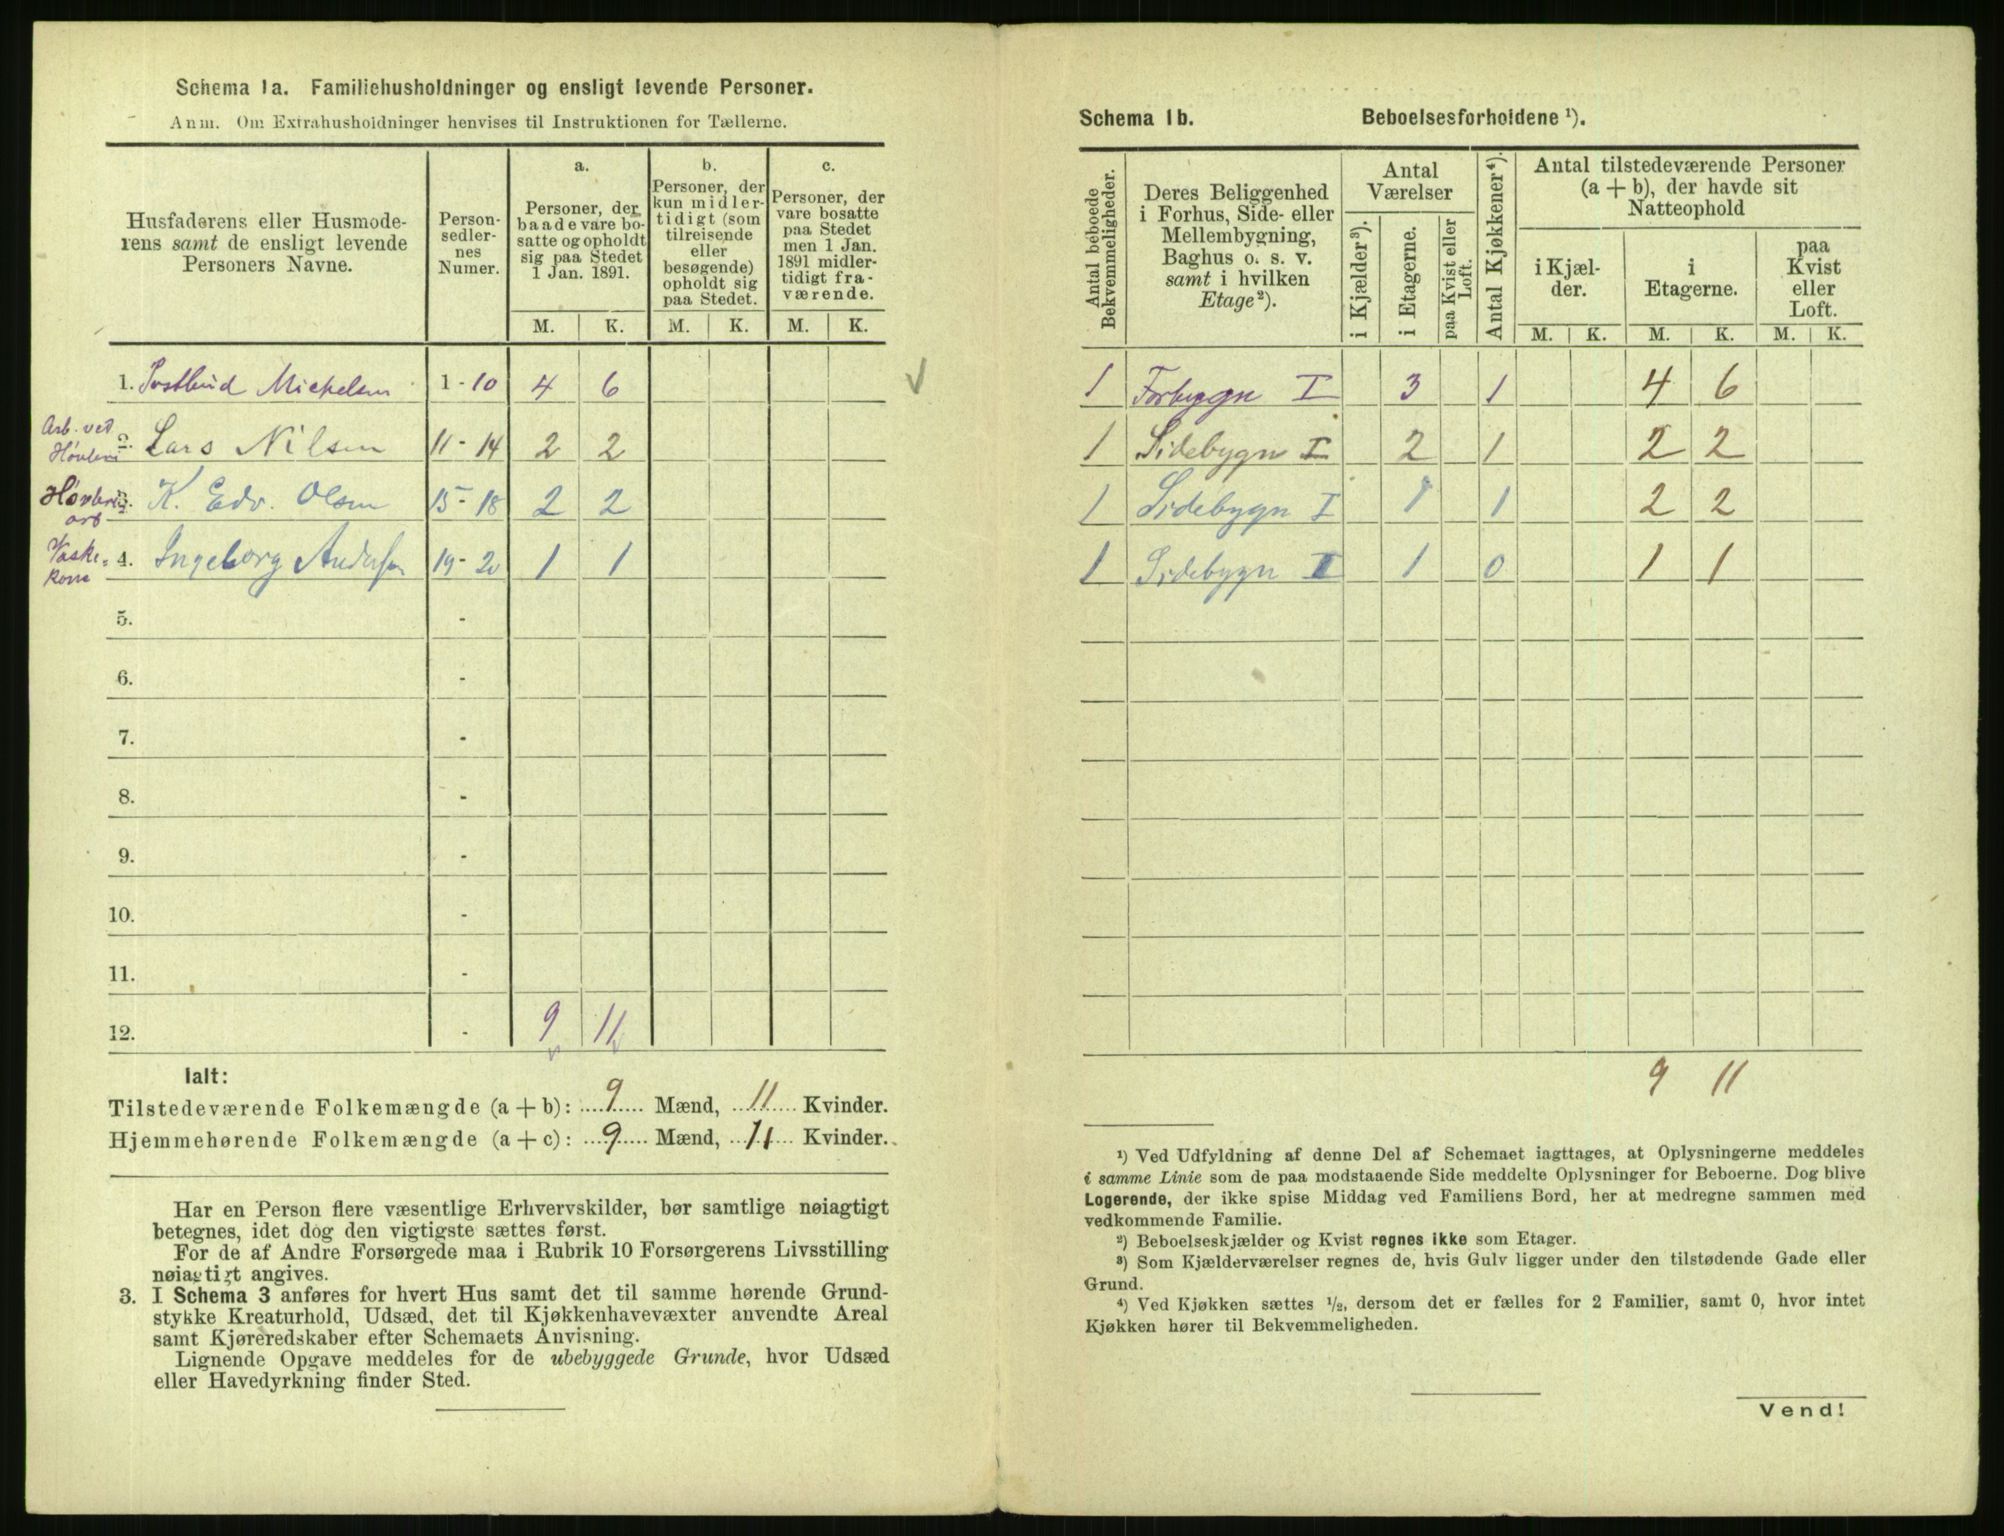 Schema 1a. Familiehusholdninger og ensligt levende Personer.
Anm. Om Extrahusholdninger henvises til Instruktionen for Tællerne.
Husfaderens eller Husmoderens samt de ensligt levende Personers Navne.
Personsedlernes Numer.
a.
Personer, der baade vare bosatte og opholdt sig paa Stedet 1 Jan. 1891.
b.
Personer, der kun midlertidigt (som tilreisende eller besøgende) opholdt sig paa Stedet.
c.
Personer, der vare bosatte paa Stedet men 1 Jan. 1891 midlertidigt fraværende.
M. K. M. K. M. K.
1. Postbud Mickelsen 1 - 10 4 6
Arb. ved Høvleri 2. Lars Nilsen 11 - 14 2 2
Høvleri arb 3. K. Edv. Olsen 15 - 18 2 2
Vaskekone 4. Ingeborg Andersen 19 - 20 1 1
5. -
6. -
7. -
8. -
9. -
10. -
11. -
12. - 9 11
Ialt:
Tilstedeværende Folkemængde (a + b): 9 Mænd, 11 Kvinder.
Hjemmehørende Folkemængde (a + c): 9 Mænd, 11 Kvinder.
Har en Person flere væsentlige Erhvervskilder, bør samtlige nøiagtigt
betegnes, idet dog den vigtigste sættes først.
For de af Andre Forsørgede maa i Rubrik 10 Forsørgerens Livsstilling
nøiagtigt angives.
3. I Schema 3 anføres for hvert Hus samt det til samme hørende Grund-
stykke Kreaturhold, Udsæd, det til Kjøkkenhavevæxter anvendte Areal
samt Kjøreredskaber efter Schemaets Anvisning.
Lignende Opgave meddeles for de ubebyggede Grunde, hvor Udsæd
eller Havedyrkning finder Sted.
Schema 1b. Beboelsesforholdene ¹).
Antal beboede Bekvemmeligheder.
Deres Beliggenhed i Forhus, Side- eller Mellembygning, Baghus o. s. v. samt i hvilken Etage²).
Antal Værelser
i Kjælder³).
i Etagerne.
paa Kvist eller Loft.
Antal Kjøkkener⁴).
Antal tilstedeværende Personer (a + b), der havde sit Natteophold
i Kjælder.
i Etagerne.
paa Kvist eller Loft.
M. K. M. K. M. K.
1 Forbygn I 3 1 4 6
1 Sidebygn I 2 1 2 2
1 Sidebygn I 1 1 2 2
1 Sidebygn II 1 0 1 1
9 11
¹) Ved Udfyldning af denne Del af Schemaet iagttages, at Oplysningerne meddeles
i samme Linie som de paa modstaaende Side meddelte Oplysninger for Beboerne. Dog blive
Logerende, der ikke spise Middag ved Familiens Bord, her at medregne sammen med
vedkommende Familie.
²) Beboelseskjælder og Kvist regnes ikke som Etager.
³) Som Kjælderværelser regnes de, hvis Gulv ligger under den tilstødende Gade eller
Grund.
⁴) Ved Kjøkken sættes ½, dersom det er fælles for 2 Familier, samt 0, hvor intet
Kjøkken hører til Bekvemmeligheden.
Vend!